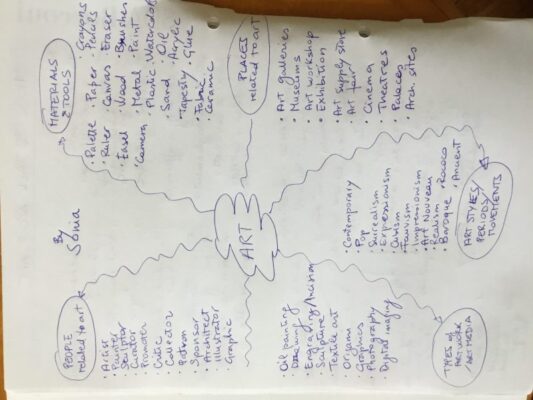 By
Sonia
ART
PEOPLE
related to art
· Artist
· Painter
· Sculptor
· Curator
· Promoter
· Critic
· Collector
· Patron
· Sponsor
· Architect
· Illustrator
· Graphic
MATERIALS
& TOOLS
· Palette
· Ruler
· Easel
· Camera
· Paper
· Canvas
· Wood
· Metal
· Plastic
· Sand
· Tapestry
· Fabric
· Ceramic
· Crayons
· Pencils
· Eraser
· Brushes
· Paint
· Watercolor
· Oil
· Acrylic
· Glue
PLACES
related to art
· Art galleries
· Museums
· Art workshop
· Exhibition
· Art supply store
· Art fair
· Cinema
· Theatres
· Palaces
· Arch. sites
ART STYLES/
PERIODS/
MOVEMENTS
· Contemporary
· Pop
· Surrealism
· Expressionism
· Cubism
· Fauvism
· Impressionism
· Art Nouveau
· Realism
· Baroque
· Rococo
· Ancient
TYPES of
ARTWORK
/ART MEDIA
· Oil painting
· Drawing
· Engraving/
· Sculpture
· Textile art
· Origami
· Graphics
· Photography
· Digital imaging